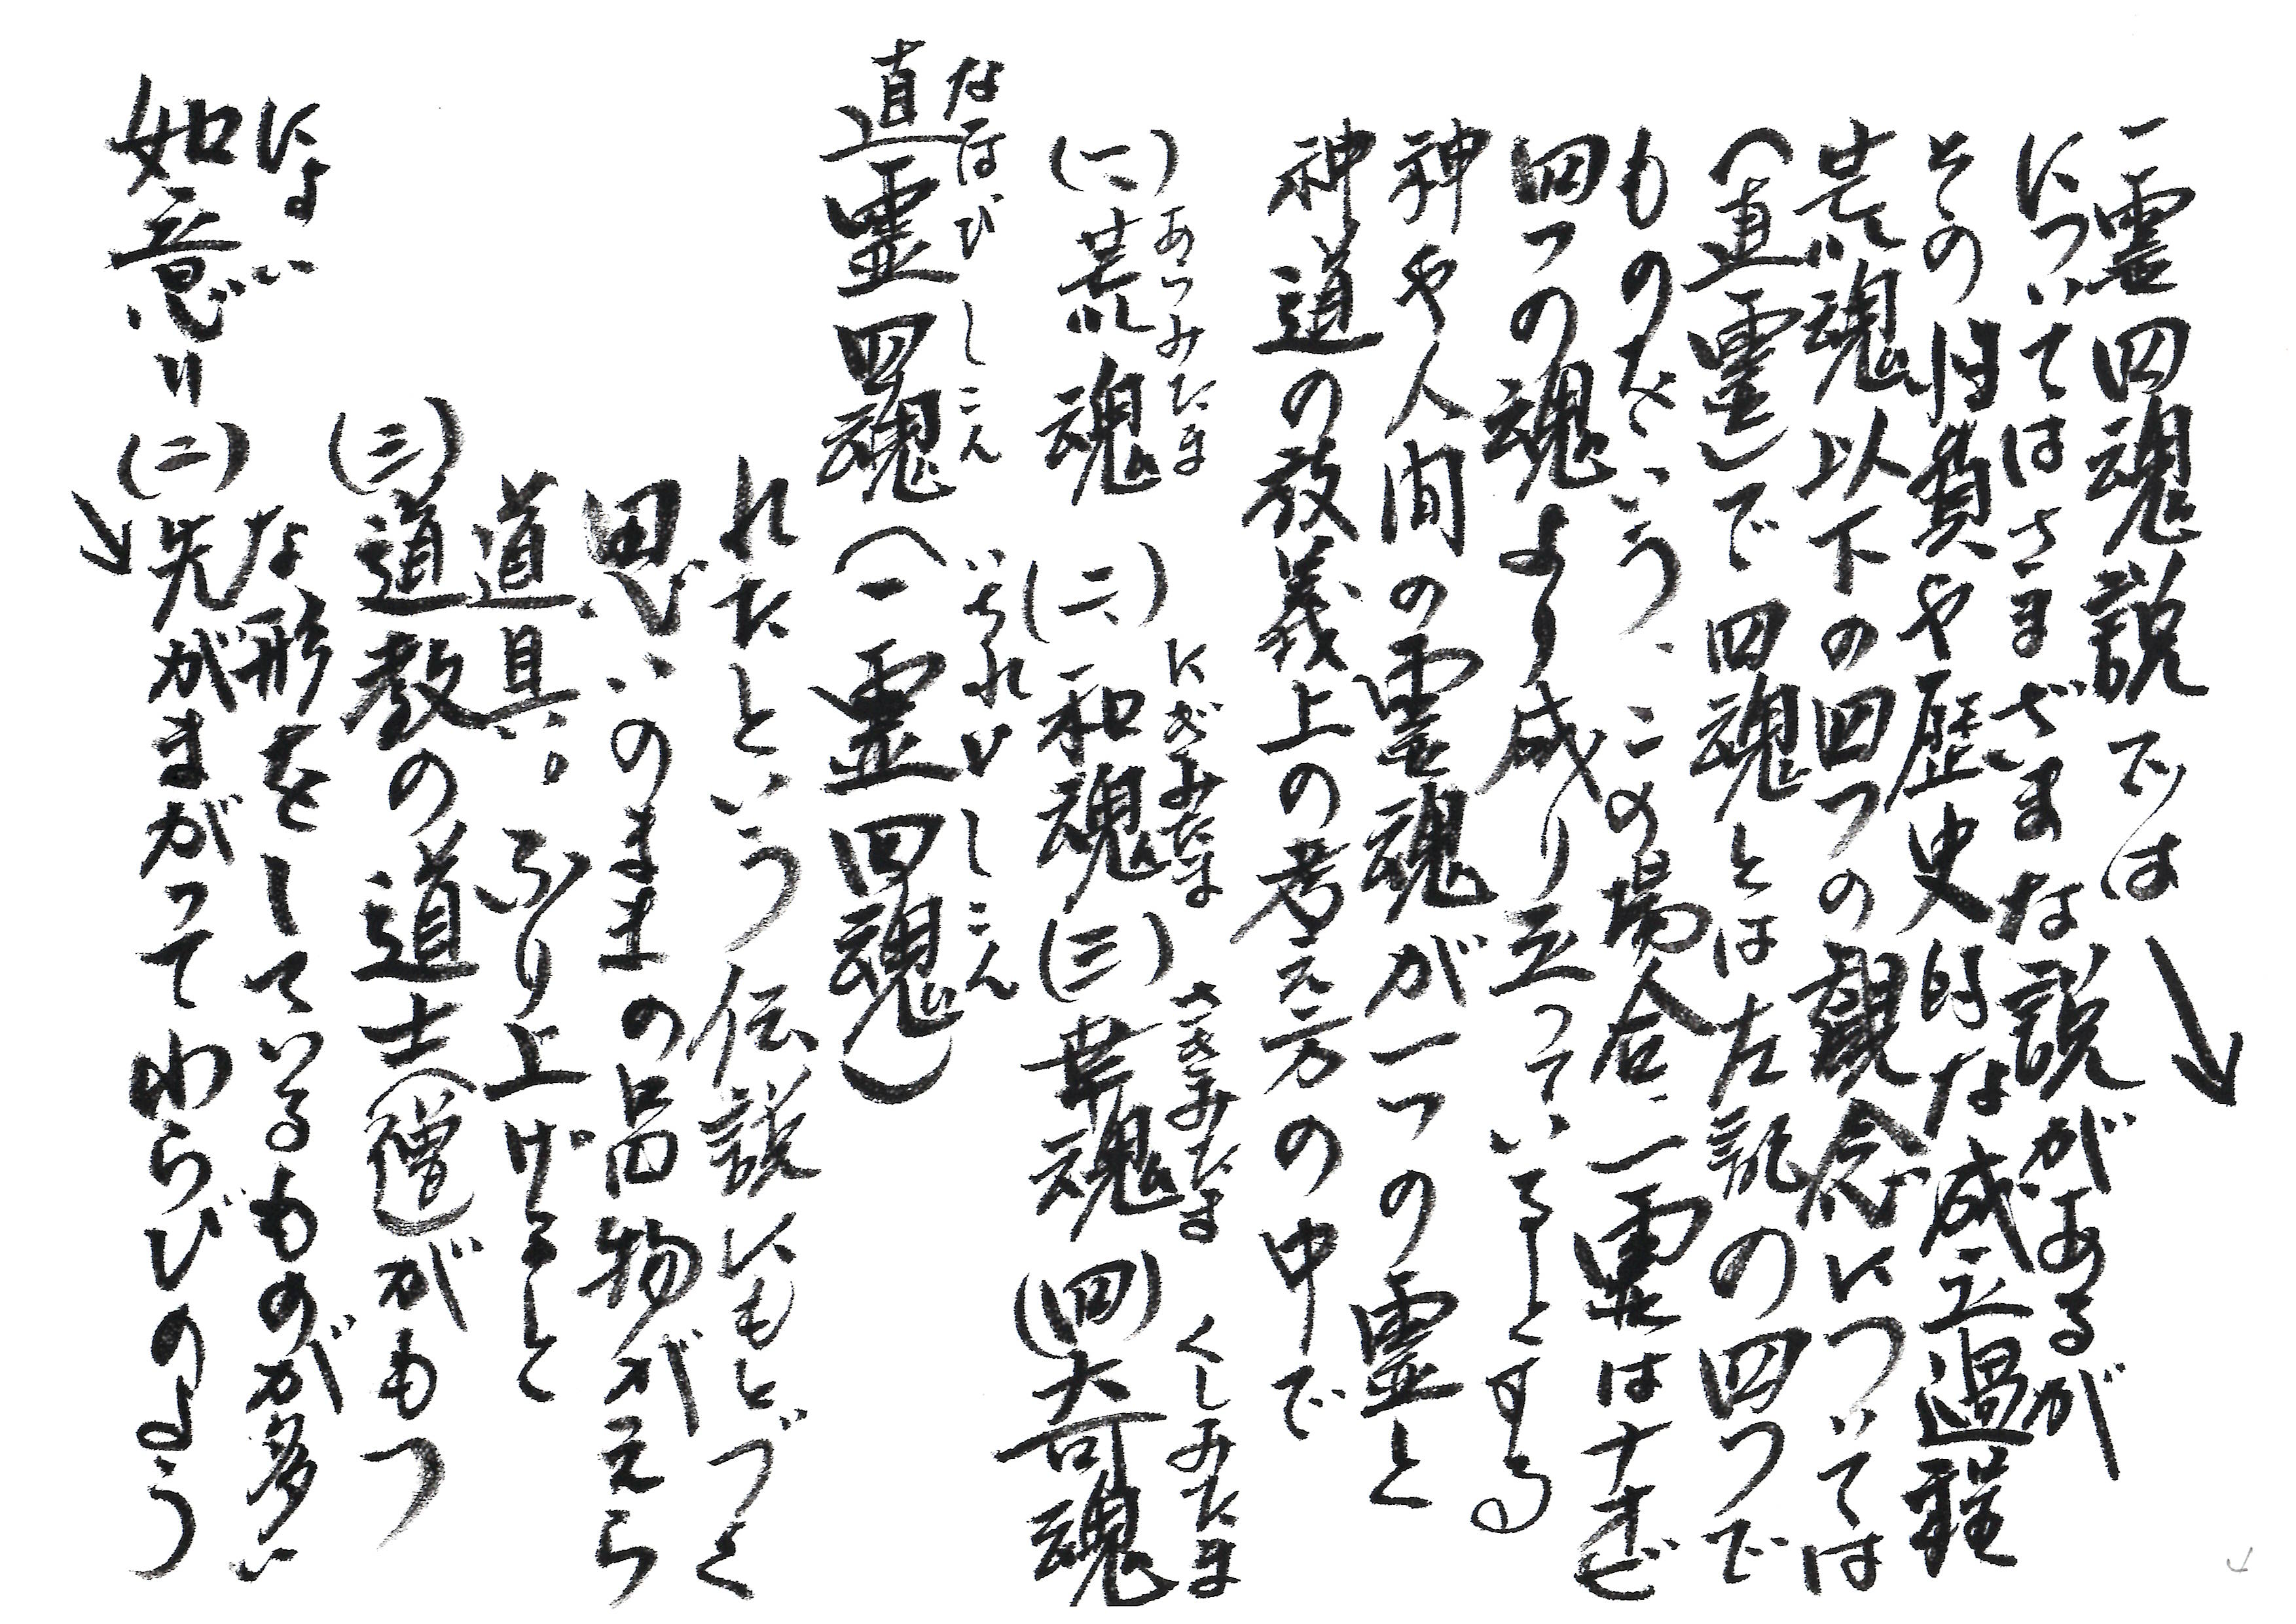 にょい
如意＝(二)先がまがってわらびのよう
な形をしているものが多い
(三)道教の道士(僧)がもつ
道具。ふり上げると
思いのままの品物がえら
れたという伝説にもとづく
なほび しこん いちれい しこん
直霊四魂(一霊四魂)
あらみたま にぎみたま さきみたま くしみたま
(一)荒魂 (二)和魂 (三)幸魂 (四)奇魂
神道の教義上の考え方の中で
神や人間の霊魂が一つの霊と
四つの魂より成り立っているとする
ものをいう、この場合、一霊はナオビ
(直霊)で四魂とは左記の四つで
荒魂以下の四つの観念については
その性質や歴史的な成立過程
についてはさまざまな説があるが
一霊四魂説では